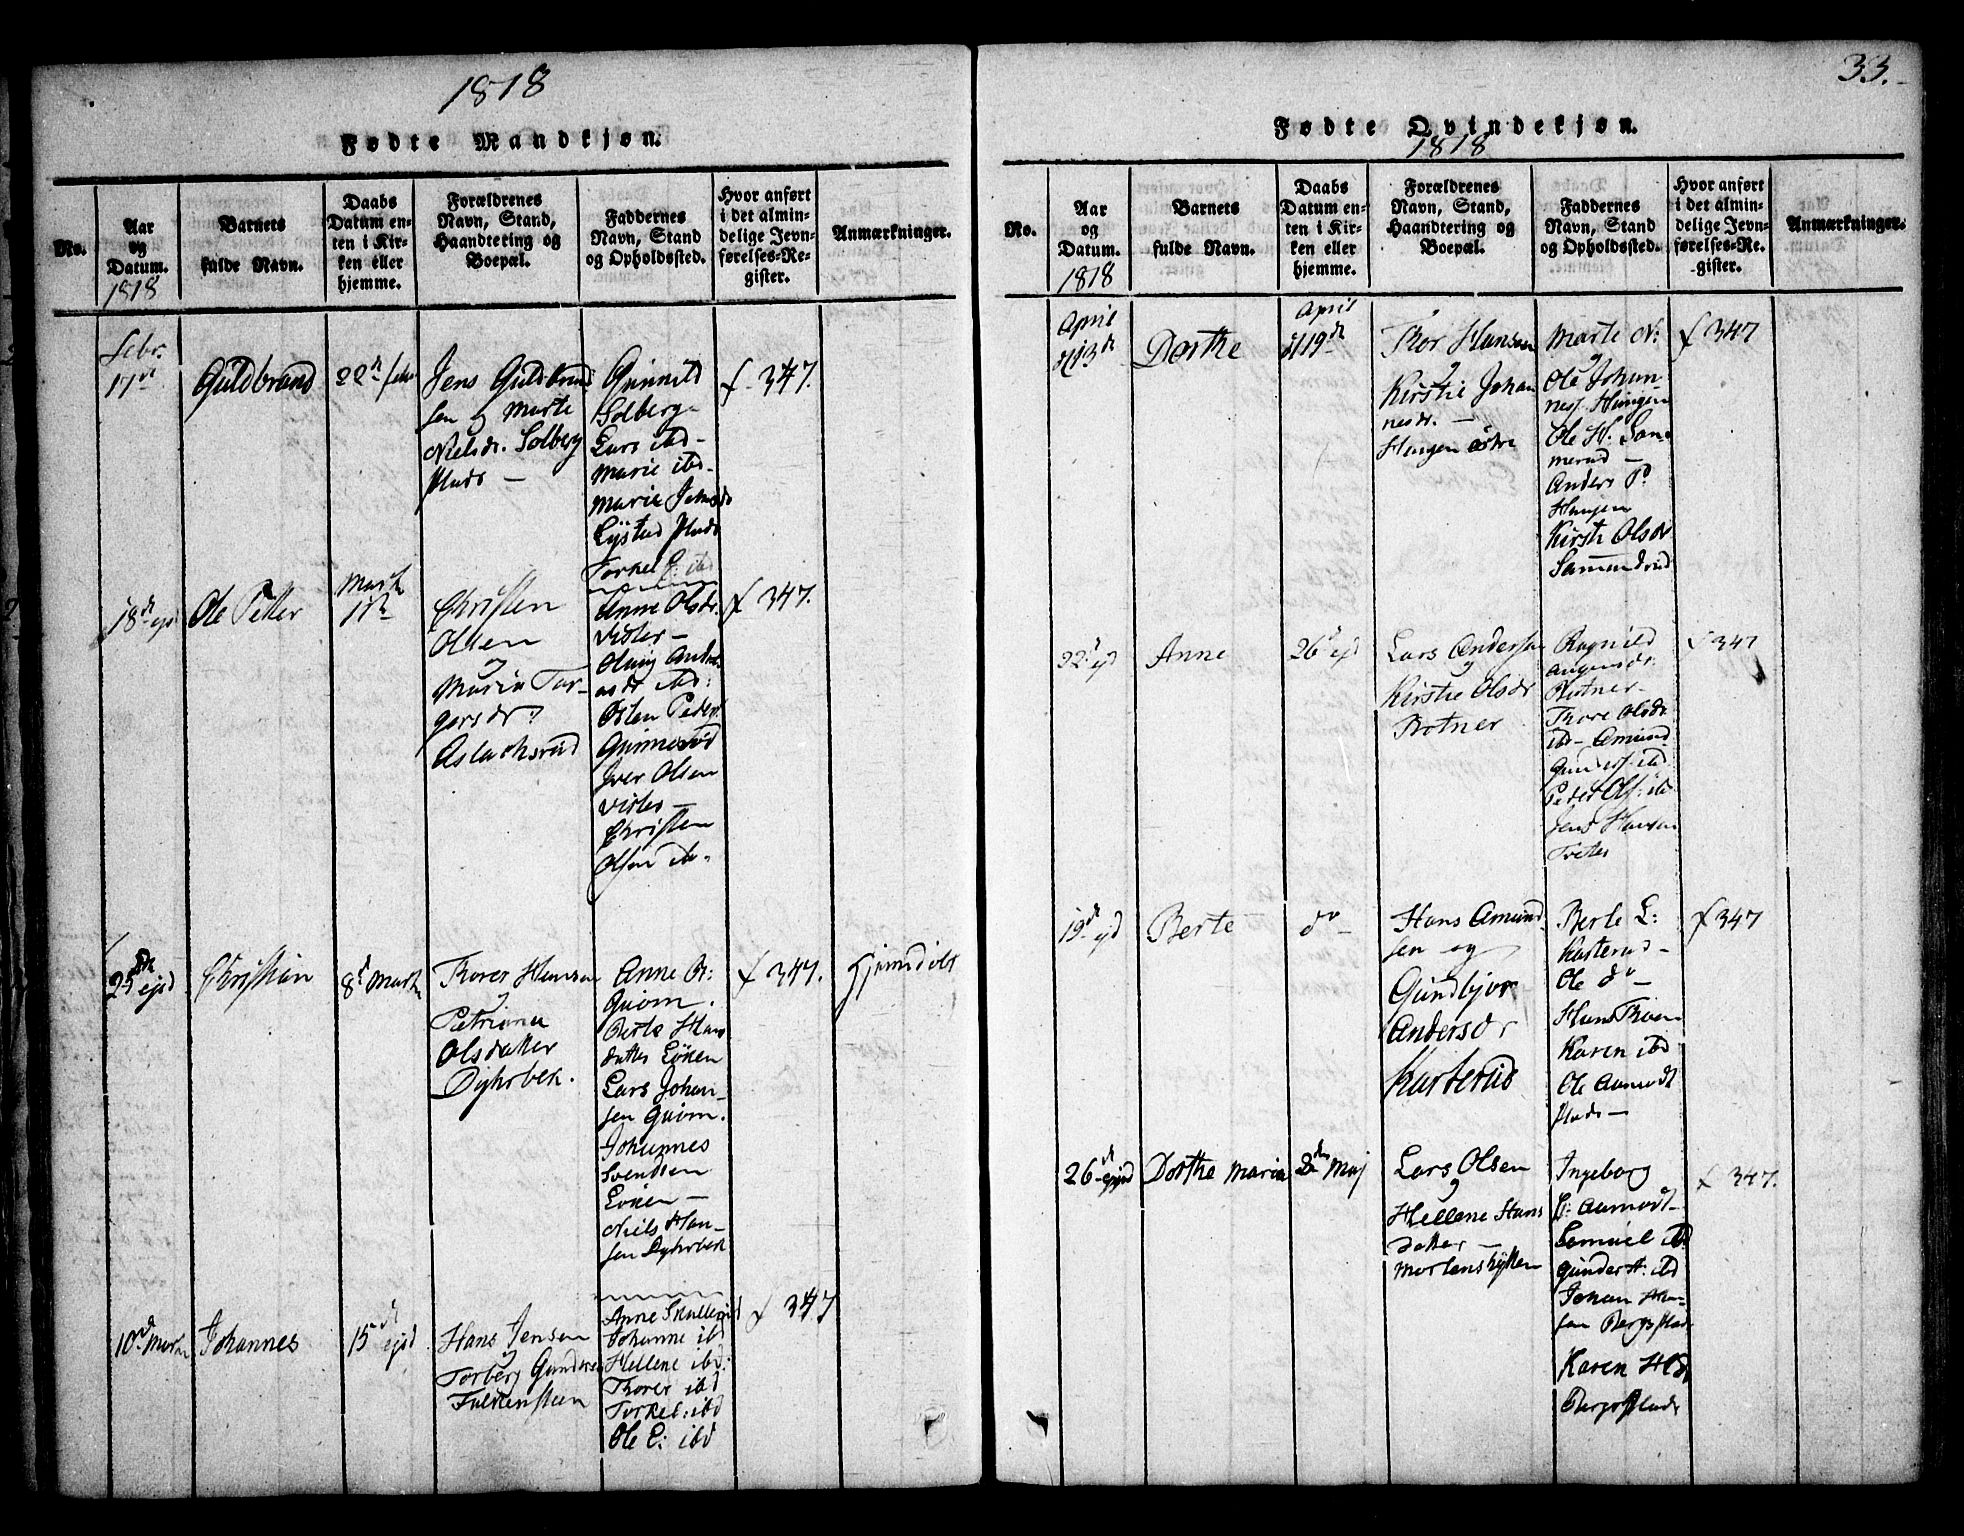 1818
Fødte Mandkjøn.
No.
Aar
og
Datum.
1818
Barnets
fulde Navn.
Daabs
Datum en-
ten i Kir-
ken eller
hjemme.
Forældrenes
Navn, Stand,
Haandtering og
Boepæl.
Faddernes
Navn, Stand
og Opholdssted.
Hvor anført
i det almin-
delige Jevn-
førelses-Re-
gister.
Anmærkninger.
Febr.
17de
Guldbrand
22de febr
Jens Guldbrand
sen og Marte
Nielsdr. Solberg
Plads –
Gunnild
Solberg
Lars ibd –
Marie ibd –
Marie Jensdr
Lystad Plads
Torkel ibd
f 347.
18de ejd
Ole Petter
Marts
1ste
Christen
Olsen
og
Maria Tor-
gersdr:
Aslachsrud
Anne Olsdr.
Vister –
ibd:
Osten Peders.
Gunnerød
Iver Olsen
Vister –
Christen
Olsen ibd.
f 347.
25de ejsd
Christian
8de Marts
Thorer Hansen
og
Petriana
Olsdatter
Dyhrbek.
Anne
Berte Hans
datter Løken
Lars Johan-
sen
Johannes
Svendsen
Løken –
Niels Han-
sen Dyhrbek
f 347.
10de Marts
Johannes
15de ejsd
Hans Jensen
og
Torberg Gunders
Falkensteen
Anne Skullerud
Johanne ibd
Hellene ibd:
Thorer ibd
Torkel: ibd
Ole E: ibd
f 347
33.
Fødte Qvindekjøn.
1818
No.
Aar
og
Datum.
1818
Barnets
fulde Navn.
Daabs
Datum en-
ten i Kir-
ken eller
hjemme.
Forældrenes
Navn, Stand,
Haandtering og
Boepæl.
Faddernes
Navn, Stand
og Opholdssted.
Hvor anført
i det almin-
delige Jevn-
førelses-Re-
gister.
Anmærkninger.
April
d 13de
Dorthe
April
d 19de
Thor Hansen
og
Kirstie Johan
nesdr. –
Haugen østre
Marte N:
Ole Johan-
nes. Haugen
Ole H. Sam-
merud –
Anders P.
Haugen
Kirsti Olsdr
Samundrud
f 347
22de ejd
Anne
26de ejd
Lars Andersen
og
Kirstie Olsdr
Rotner
Ragnild
Rotner –
Thore Olsdr
ibd – Amund
Gunders. ibd
Peder Ols: ibd
Jens Hansen
f 347
19de ejd
Berte
do –
Hans Amund-
sen og
Gundbjør
Andersdr
Karterud
Berte L:
Karterud –
Ole do –
Hans Thoen
Karen ibd
Ole Aamodt
Plads –
f 347
26de ejsd
Dorthe Maria
3de Maj
Lars Olsen
og
Hellene Hans
datter –
Mortenshytten
Ingeborg
L: Aamodt –
Samuel ibd
Gunder H: ibd
Johan Han-
sen Bergsplads
Karen Hdr
Bergsplads
f 347.